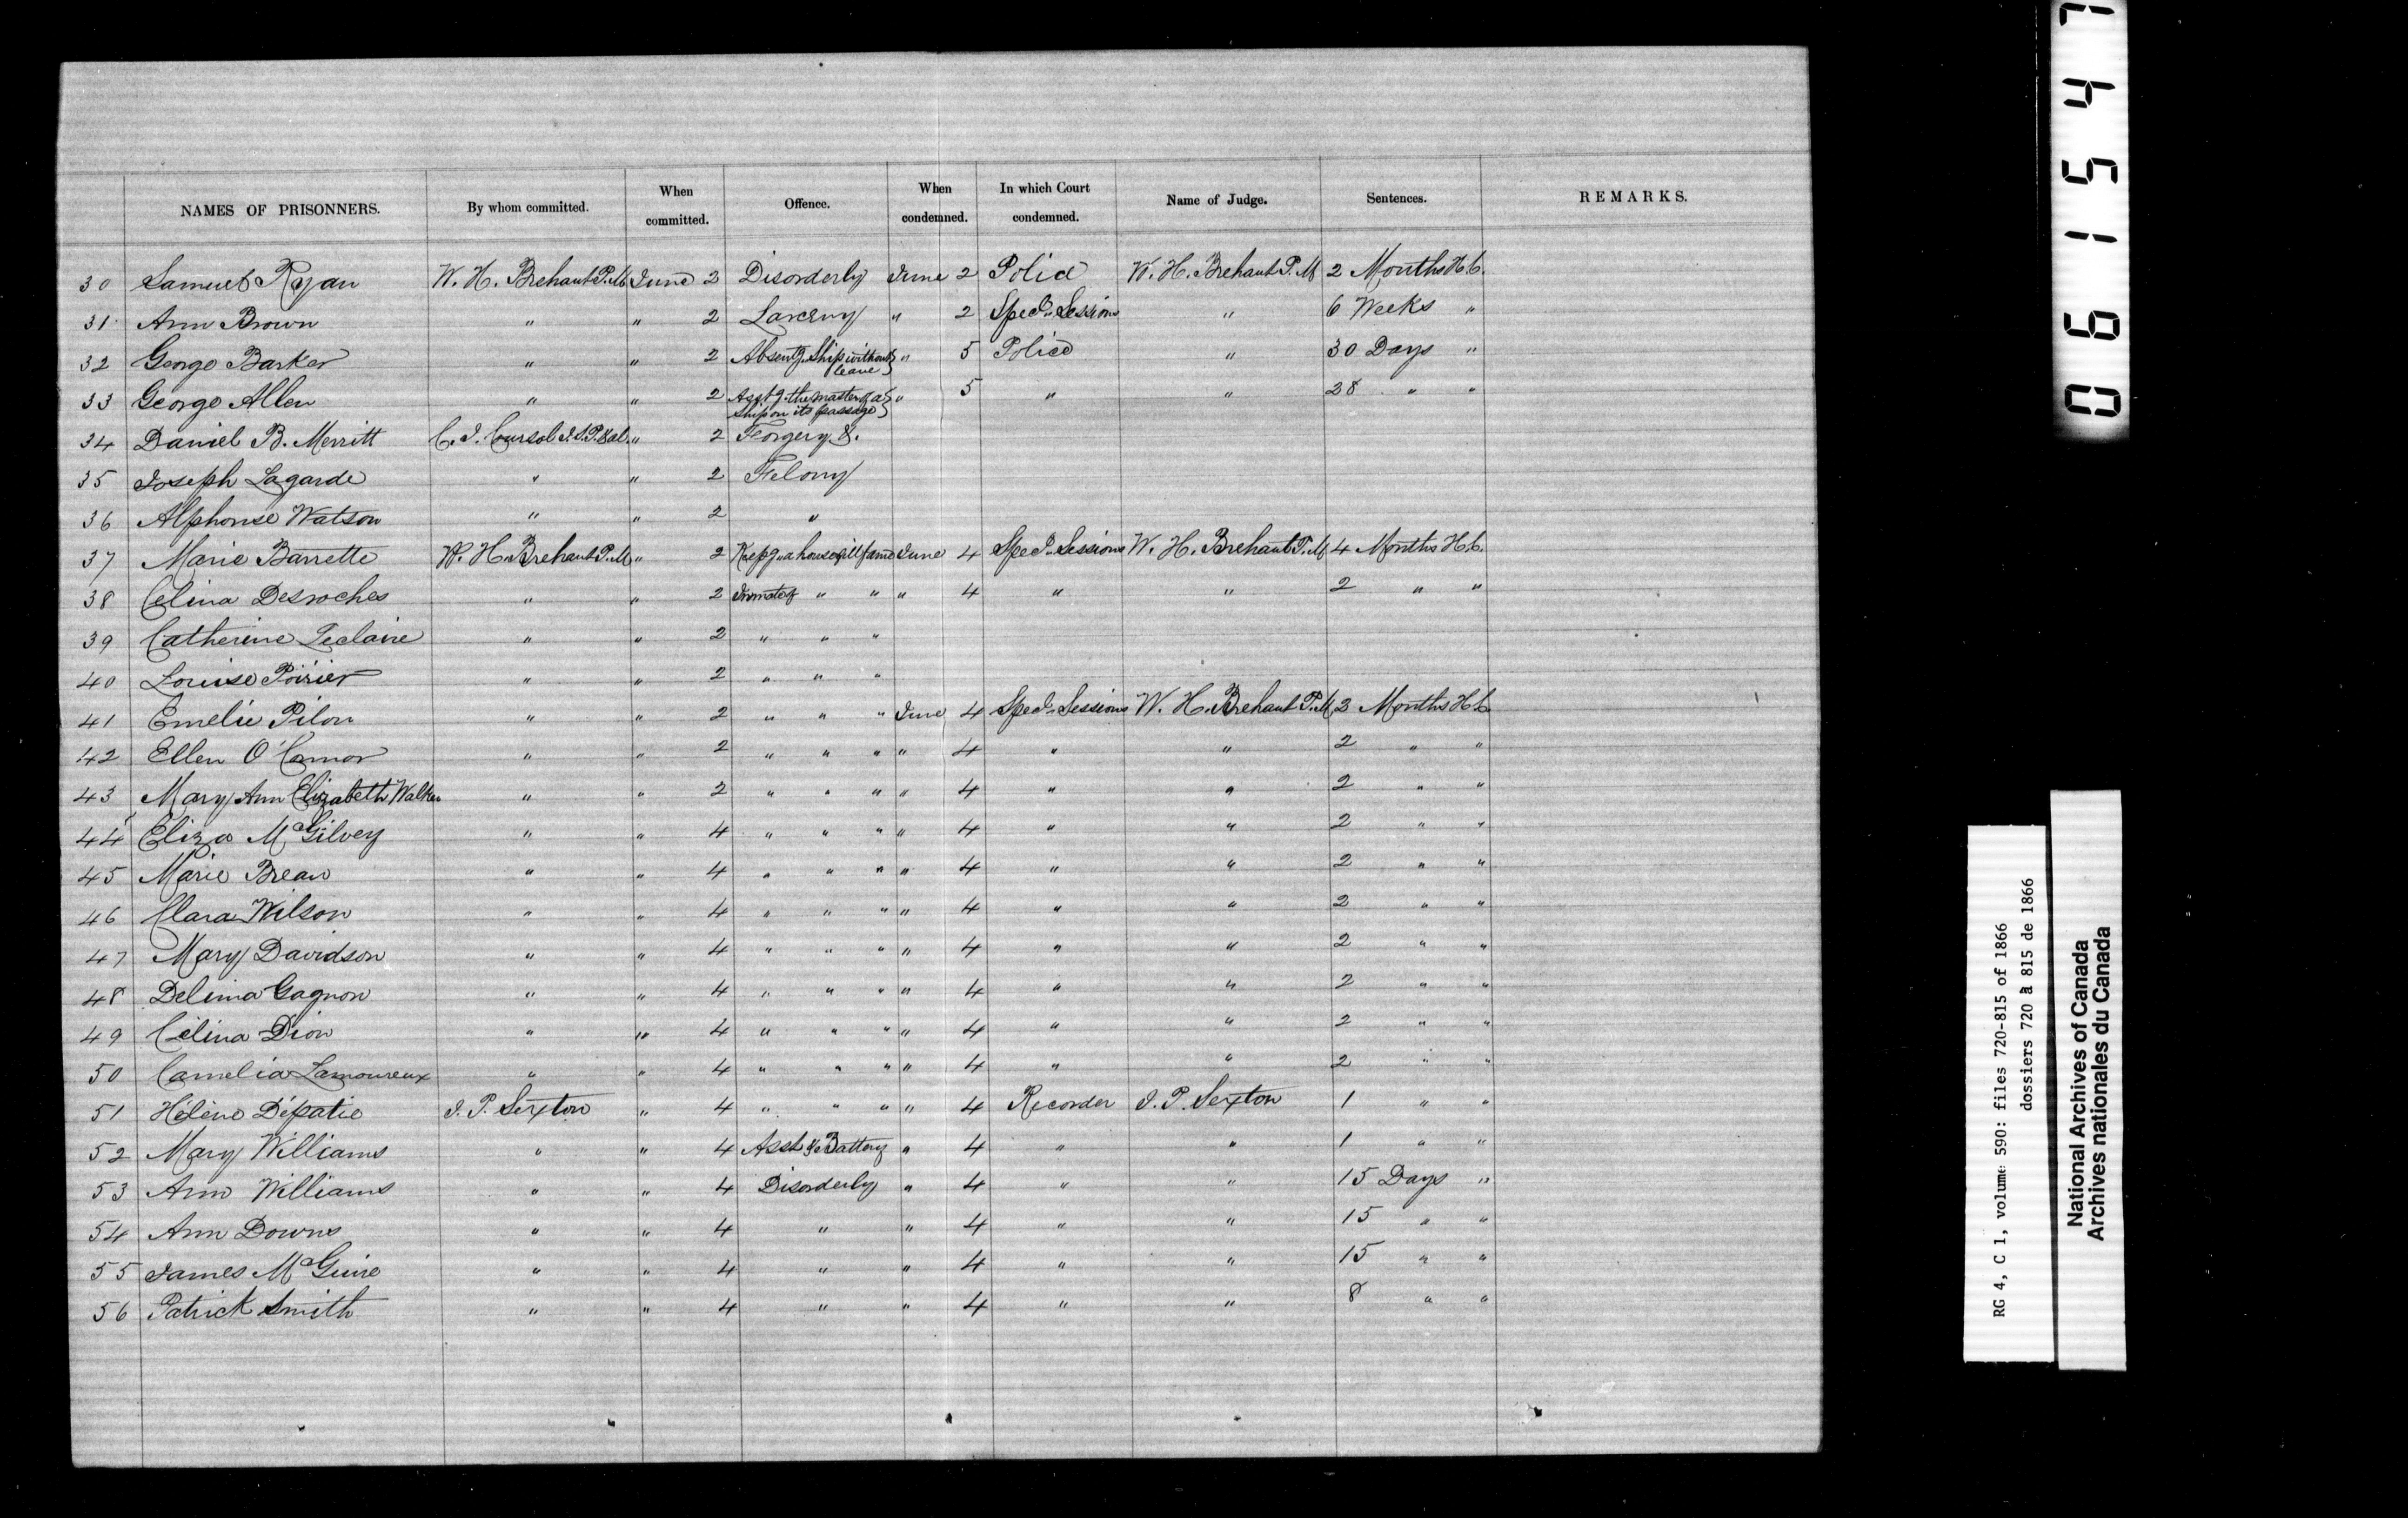 NAMES OF PRISONNERS. By whom committed. When committed. Offence. When condemned. In which Court condemned. Name of Judge. Sentences. REMARKS.
30 Samuel Ryan W. H. Brehaut P. M. June 2 Disorderly June 2 Police W. H. Brehaut P. M. 2 Months H. L.
31 Ann Brown " " 2 Larceny " 2 Specl. Sessions " 6 Weeks "
32 George Barker " " 2 Absentg. Ship without leave } " 5 Police " 30 Days "
33 George Allen " " 2 Asst'g. the master of a ship on its passage } " 5 " " 28 " "
34 Daniel B. Merritt C. J. Coursol J. S. P. &al. " 2 Forgery &.
35 Joseph Lagarde " " 2 Felony
36 Alphonse Watson " " 2 "
37 Marie Barrette W. H. Brehaut P. M. " 2 Keepg. a house of ill fame June 4 Specl. Sessions W. H. Brehaut P. M. 4 Months H. L.
38 Celina Desroches " " 2 Inmate of " " " 4 " " 2 " "
39 Catherine Leclaire " " 2 " " "
40 Louise Poirier " " 2 " " "
41 Emelie Pilon " " 2 " " " June 4 Specl. Sessions W. H. Brehaut P. M. 2 Months H. L.
42 Ellen O'Connor " " 2 " " " " 4 " " 2 " "
43 Mary Ann Elizabeth Walker " " 2 " " " " 4 " " 2 " "
44 Eliza McGilvey " " 4 " " " " 4 " " 2 " "
45 Marie Breau " " 4 " " " " 4 " " 2 " "
46 Clara Wilson " " 4 " " " " 4 " " 2 " "
47 Mary Davidson " " 4 " " " " 4 " " 2 " "
48 Delima Gagnon " " 4 " " " " 4 " " 2 " "
49 Célina Dion " " 4 " " " " 4 " " 2 " "
50 Camelia Lamoureux " " 4 " " " " 4 " " 2 " "
51 Hélène Dépatie J. P. Sexton " 4 " " " " 4 Recorder J. P. Sexton 1 " "
52 Mary Williams " " 4 Asslt & Battery " 4 " " 1 " "
53 Ann Williams " " 4 Disorderly " 4 " " 15 Days "
54 Ann Downs " " 4 " " 4 " " 15 " "
55 James McGuire " " 4 " " 4 " " 15 " "
56 Patrick Smith " " 4 " " 4 " " 8 " "
061547
RG 4, C 1, volume 590: files 720-815 of 1866
dossiers 720 à 815 de 1866
National Archives of Canada
Archives nationales du Canada